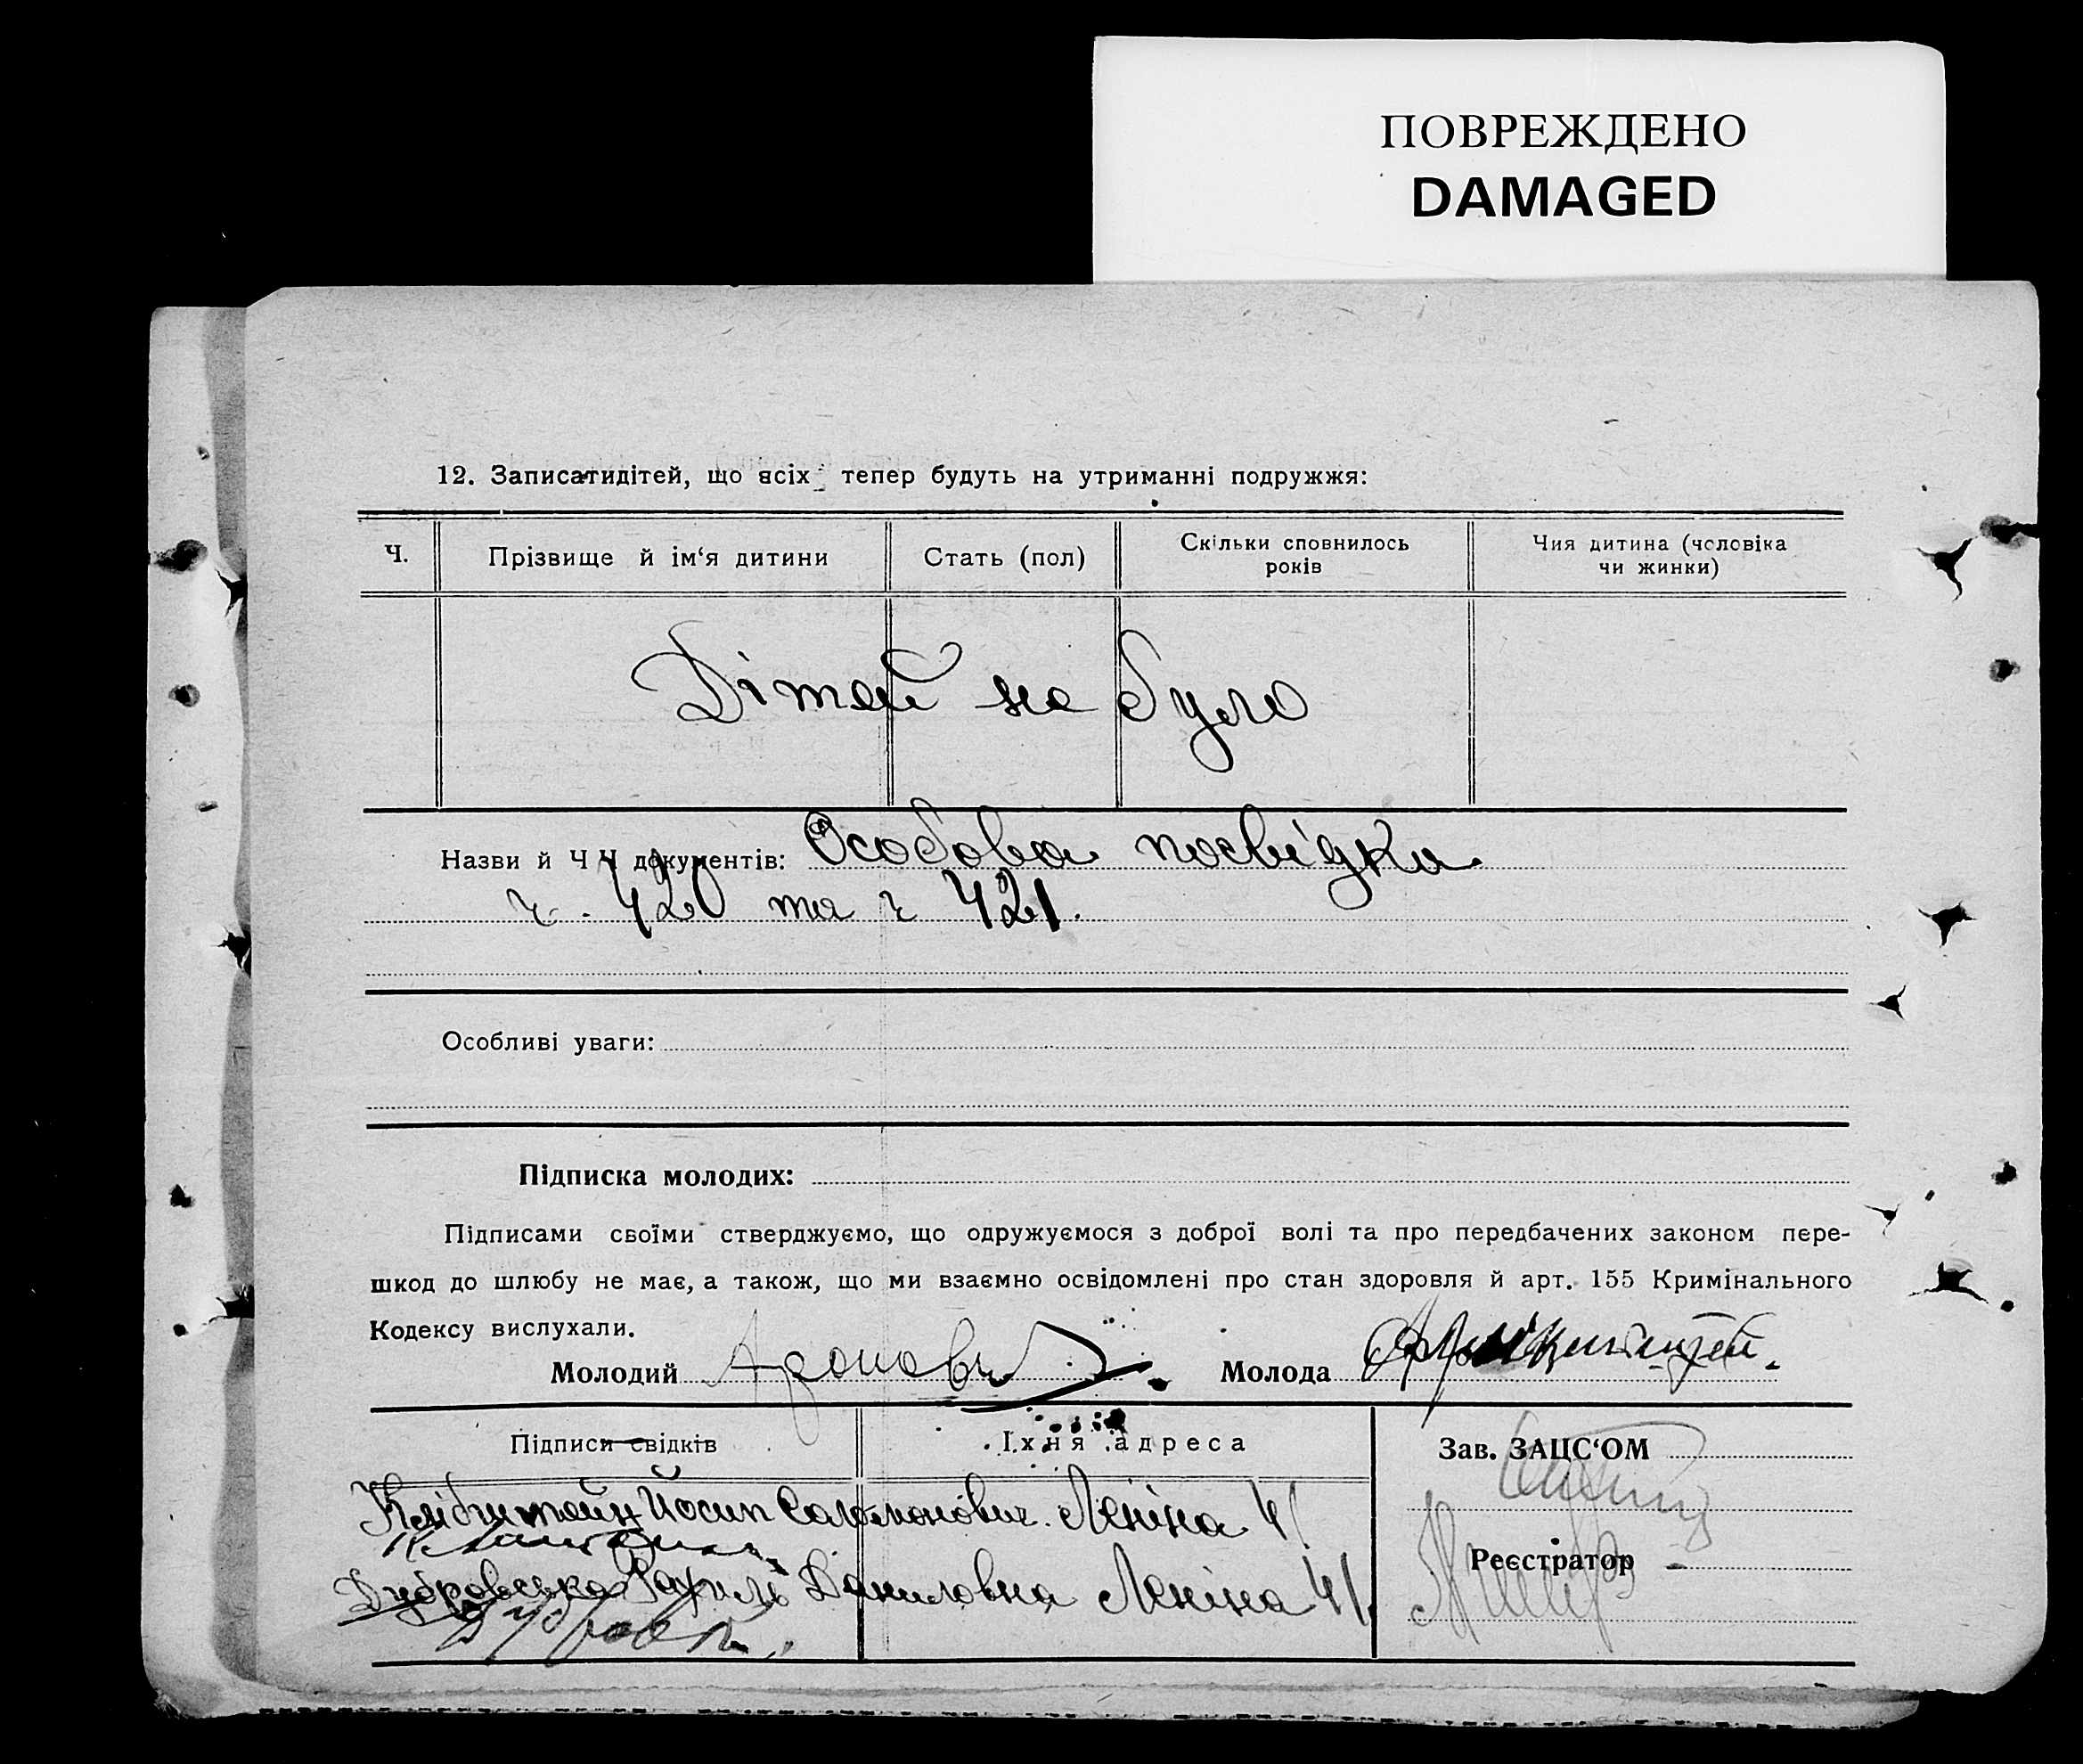 ПОВРЕЖДЕНО
DAMAGED
12. Записатидітей, що всіх тепер будуть на утриманні подружжя:
Ч.
Прізвище й ім‘я дитини
Стать (пол)
Скільки сповнилось
років
Чия дитина (чоловіка
чи жинки)
Дітей не було
Назви й Ч Ч документів: Особова посвідка
ч. 420 та ч 421.
Особливі уваги:
Підписка молодих:
Підписами своїми стверджуємо, що одружуємося з доброї волі та про передбачених законом пере-
шкод до шлюбу не має, а також, що ми взаємно освідомлені про стан здоровля й арт. 155 Кримінального
Кодексу вислухали.
Молодий Аронов
Молода
Підписи свідків
Їхня адреса
Зав. ЗАЦС‘ОМ
Йосип Саломонович. Леніна 41
Реєстратор
Дубровська Рахиль Даниловна Леніна 41